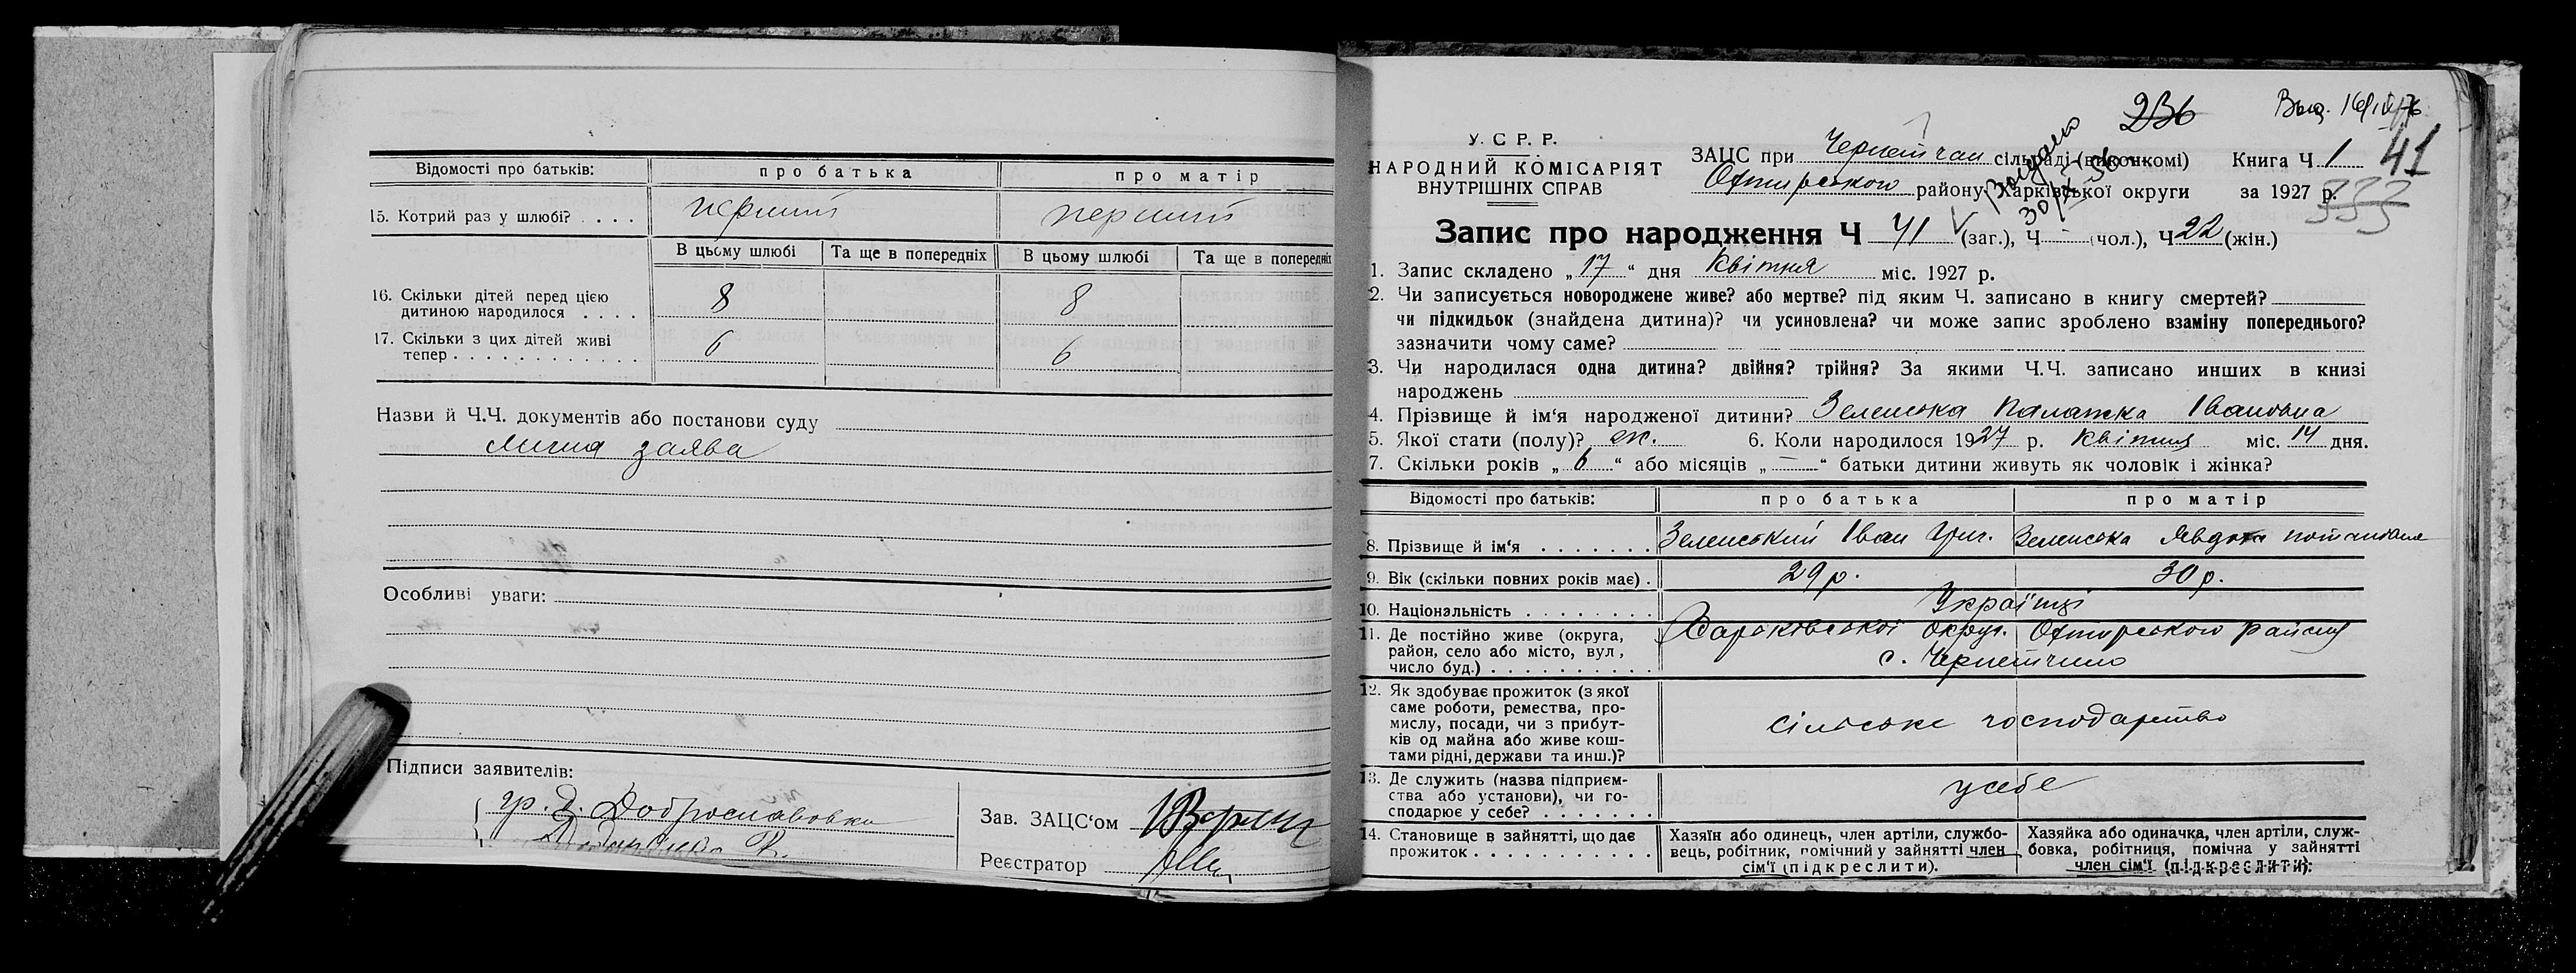 Відомості про батьків: про батька про матір
15. Котрий раз у шлюбі? . . . . перший перший
В цьому шлюбі Та ще в попередніх В цьому шлюбі Та ще в попередніх
16. Скільки дітей перед цією
дитиною народилося . . . . 8 8
17. Скільки з цих дітей живі
тепер . . . . . . . . . . . . 6 6
Назви й Ч.Ч. документів або постанови суду
лична заява
Особливі уваги:
Підписи заявителів:
гр. Д. Доброславовка
Зав. ЗАЦС'ом
Реєстратор
236
41
У. С. Р. Р.
НАРОДНИЙ КОМІСАРІЯТ
ВНУТРІШНІХ СПРАВ
ЗАЦС при Чернетчан сільраді (виконкомі) Книга Ч 1
Охтирського району Харківської округи за 1927 р.
Видано
30/IX
333
Запис про народження Ч 41 (заг.), Ч — (чол.), Ч 22 (жін.)
1. Запис складено „17“ дня Квітня міс. 1927 р.
2. Чи записується новороджене живе? або мертве? під яким Ч. записано в книгу смертей?
чи підкидьок (знайдена дитина)? чи усиновлена? чи може запис зроблено взаміну попереднього?
зазначити чому саме?
3. Чи народилася одна дитина? двійня? трійня? За якими Ч.Ч. записано инших в книзі
народжень
4. Прізвище й ім'я народженої дитини? Зеленська Палажка Івановна
5. Якої стати (полу)? ж. 6. Коли народилося 1927 р. Квітня міс. 14 дня.
7. Скільки років „6“ або місяців „—“ батьки дитини живуть як чоловік і жінка?
Відомості про батьків: про батька про матір
8. Прізвище й ім'я . . . . . . . Зеленський Іван Григ. Зеленська Явдоха
9. Вік (скільки повних років має) . 29 р. 30 р.
10. Національність . . . . . . . . Українці
11. Де постійно живе (округа, Харьківської округ. Охтирського району
район, село або місто, вул., с. Чернетчино
число буд.) . . . . . . . . . .
12. Як здобуває прожиток (з якої
саме роботи, ремества, про-
мислу, посади, чи з прибут- сільське господарство
ків од майна або живе кош-
тами рідні, держави та инш.)?
13. Де служить (назва підприєм- у себе
ства або установи), чи го-
сподарює у себе? . . . . . . .
14. Становище в зайнятті, що дає Хазяїн або одинець, член артіли, службо- Хазяйка або одиначка, член артіли, служ-
прожиток . . . . . . . . . . . вець, робітник, помічний у зайнятті член бовка, робітниця, помічна у зайнятті
сім'ї (підкреслити). член сім'ї (підкреслити):